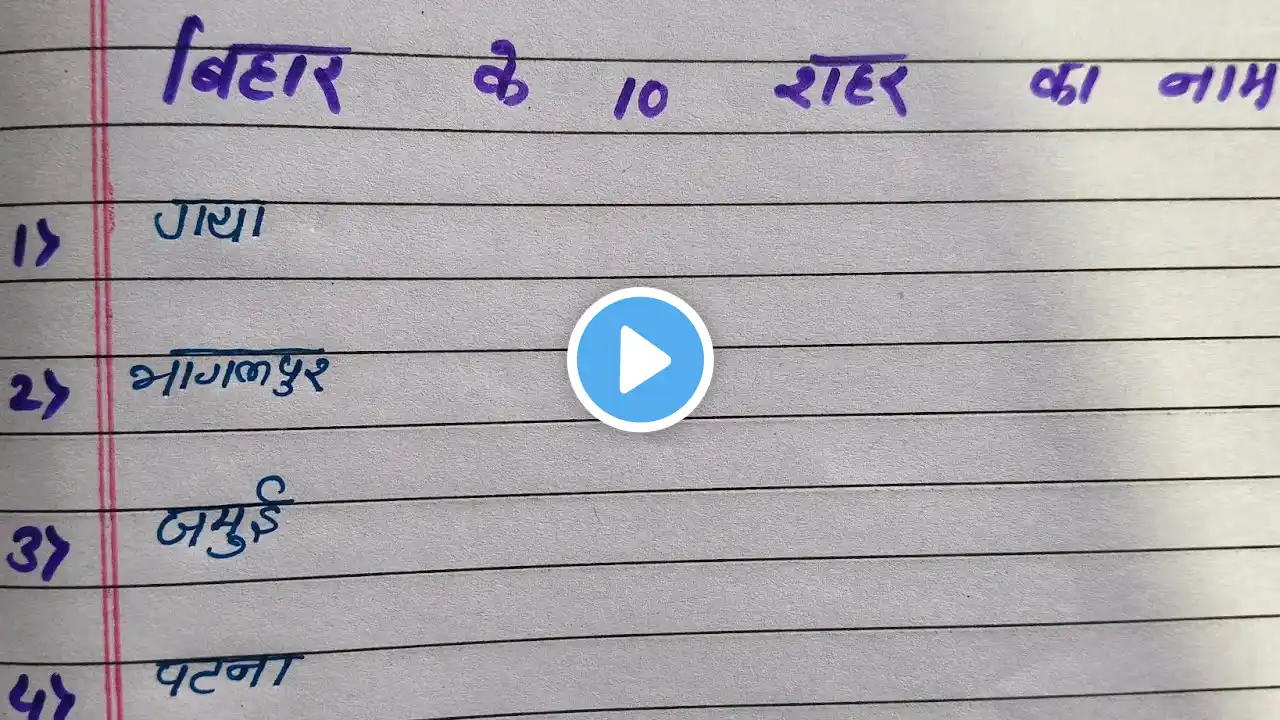 बिहार के 10 शहर का नाम
1> गया
2> भागलपुर
3> जमुई
4> पटना